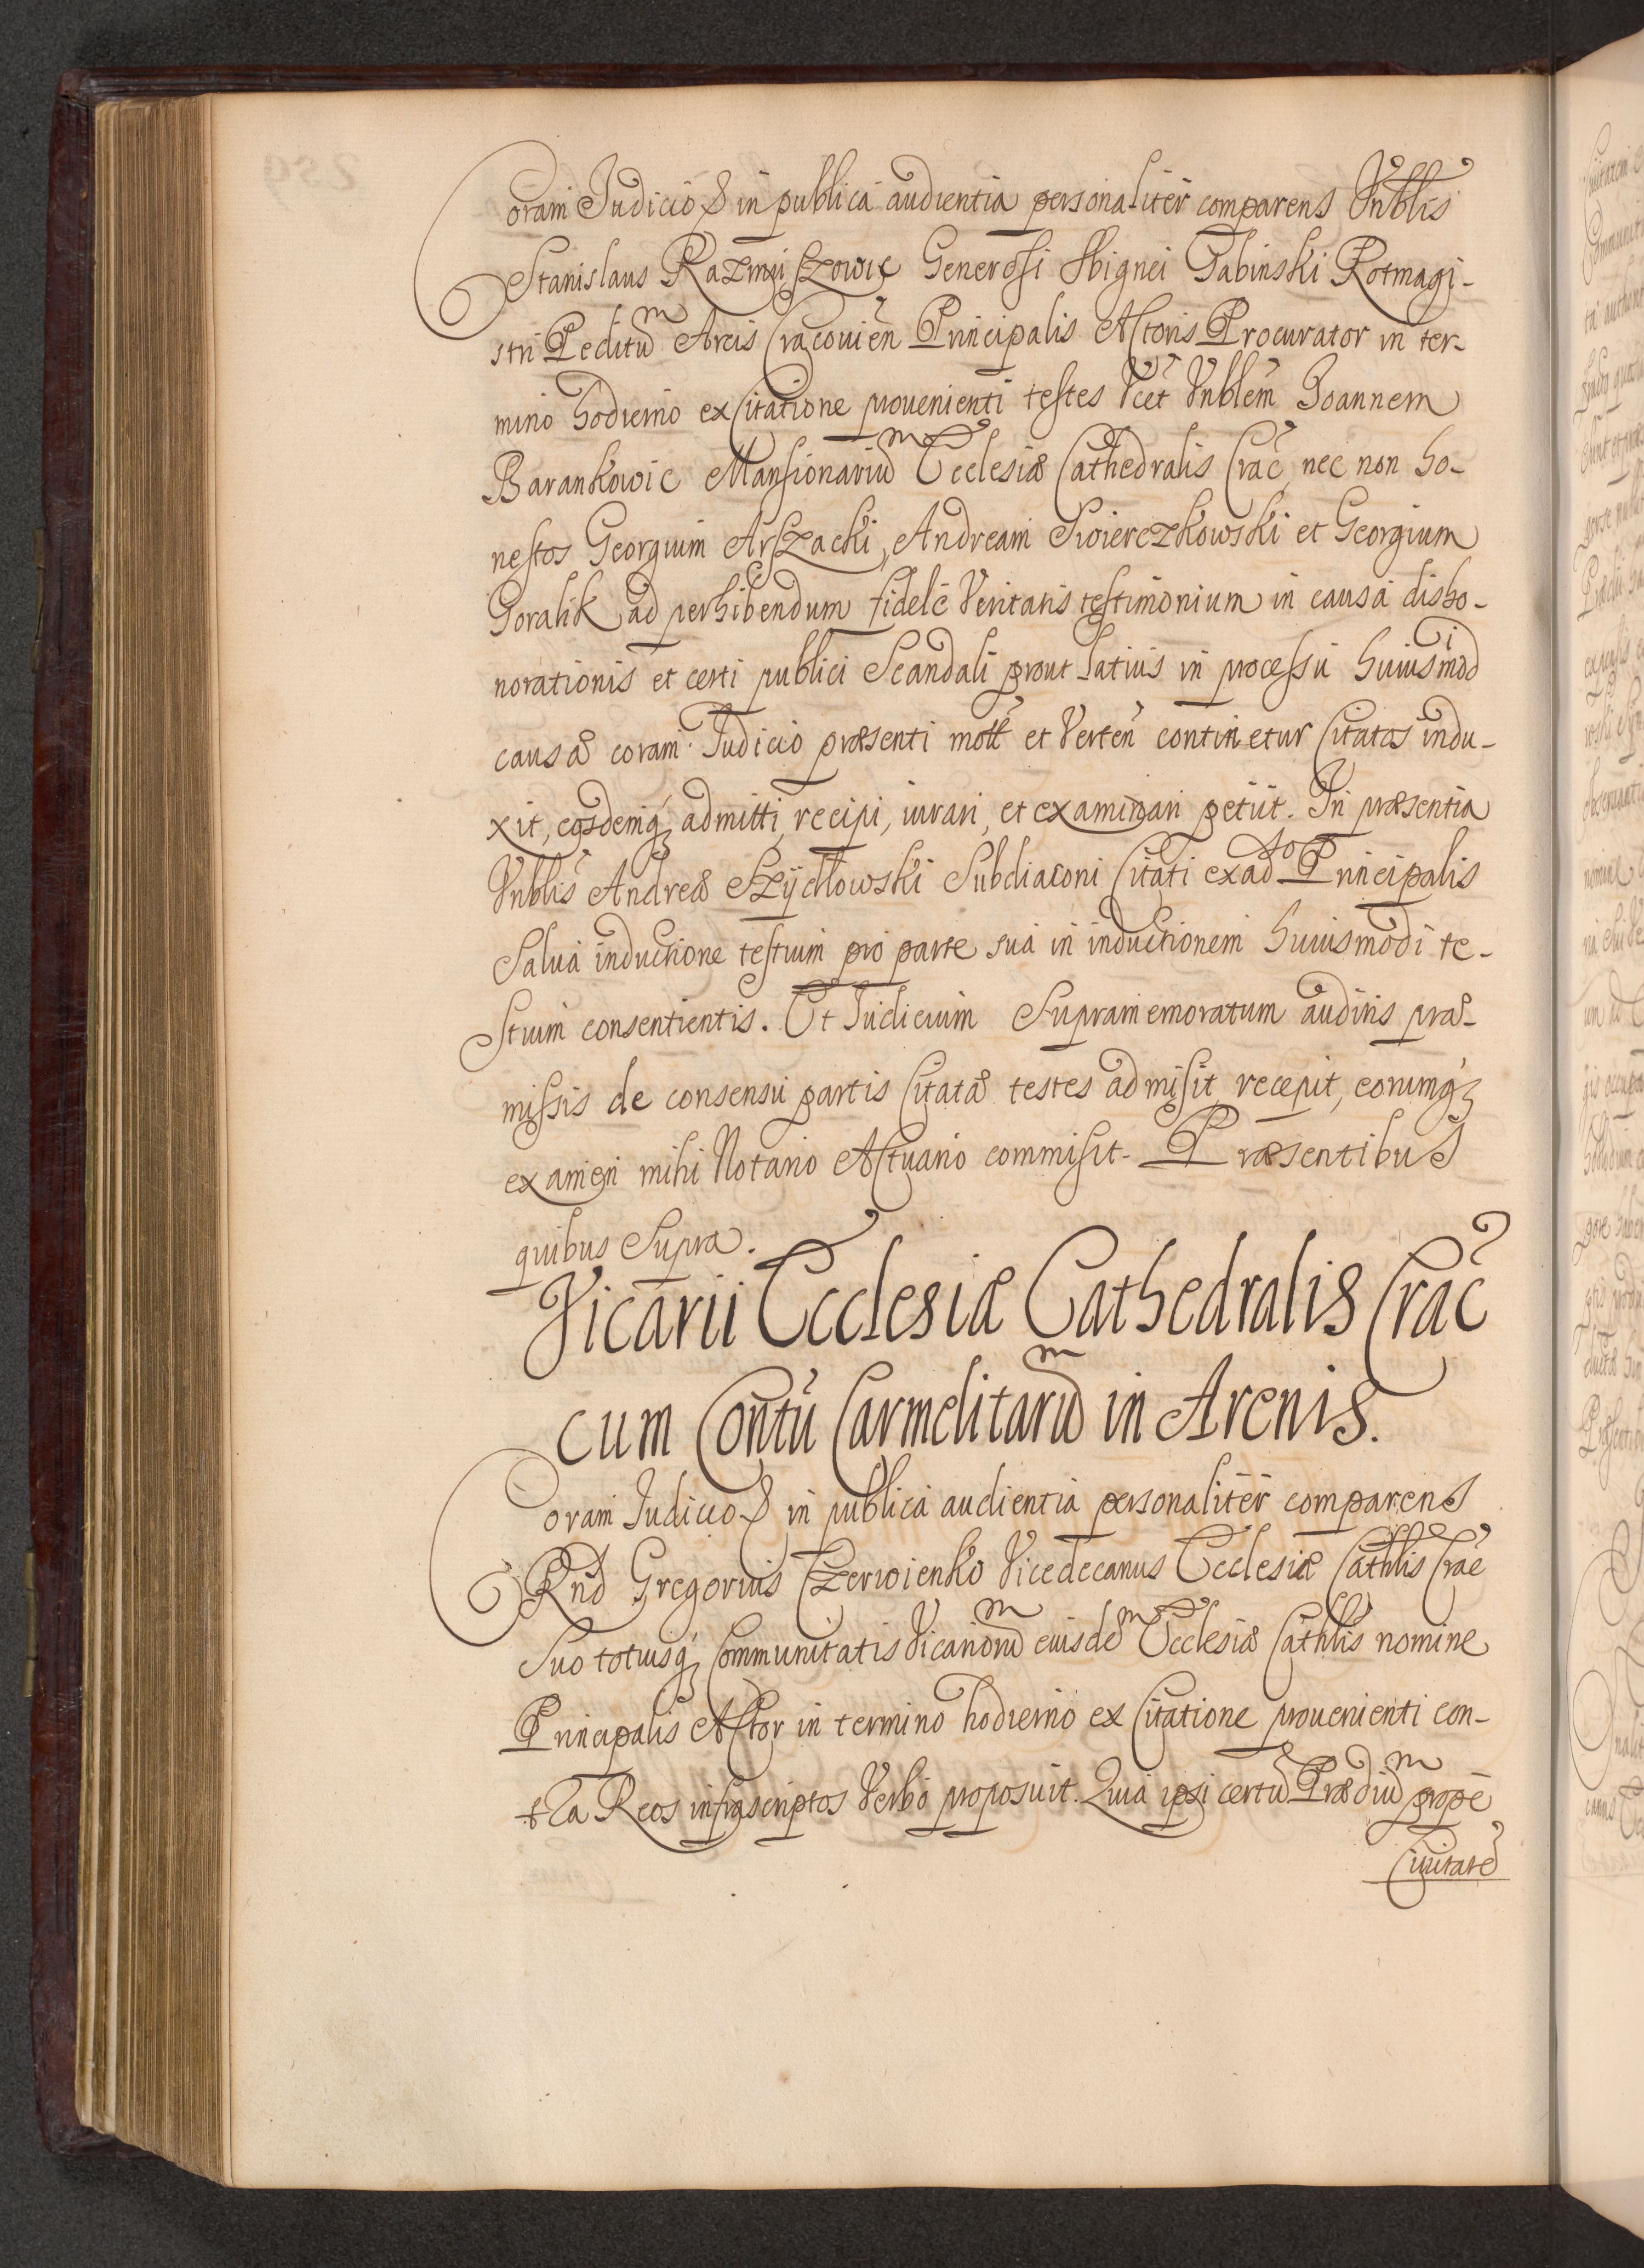 Coram Judicio & in publica audientia personaliter comparens Vnblis
Stanislaus Razmuiszowic Generosi Sbignei Gabinski Rotmagi-
stri Peditum Arcis Cracouien Principalis Actoris Procurator in ter-
mino hodierno ex Citatione prouenienti testes Vcet Vnblem Joannem
Barankowic Mansionarium Ecclesiæ Cathedralis Crac, nec non ho-
nestos Georgium Arszacki, Andream Swierczkowski et Georgium
Goralik ad perhibendum fidele Veritatis testimonium in causa disho-
norationis et certi publici Scandali prout latius in processu huiusmodi
causæ coram Judicio præsenti mott et Verten continetur Citatos indu-
xit, eosdemq; admitti, recipi, iurari, et examinari petiit. In præsentia
Vnblis Andreæ Szÿdlowski Subdiaconi Citati ex ad so Principalis
Salua inductione testium pro parte sua in inductionem huiusmodi te-
stium consentientis. Et Judicium Supramemoratum auditis præ-
missis de consensu partis Citatæ testes admisit, recepit, eorumq;
examen mihi Notario Actuario commisit. Præsentibus
quibus Supra.
Vicarii Ecclesiæ Cathedralis Crac
cum Contu Carmelitarum in Arenis.
Coram Judicio & in publica audientia personaliter comparens
Rnd Gregorius Czerwienko Vicedecanus Ecclesiæ Cathlis Crac
Suo totiusq; Communitatis Vicariorum eiusdem Ecclesiæ Cathlis nomine
Principalis Actor in termino hodierno ex Citatione prouenienti con-
tra Reos infrascriptos Verbo proposuit. Quia ipsi certum Prædium prope
Ciuitate